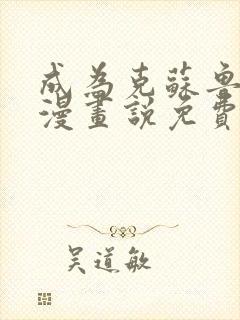 成為克蘇魯
漫畫說免費
吴道敏